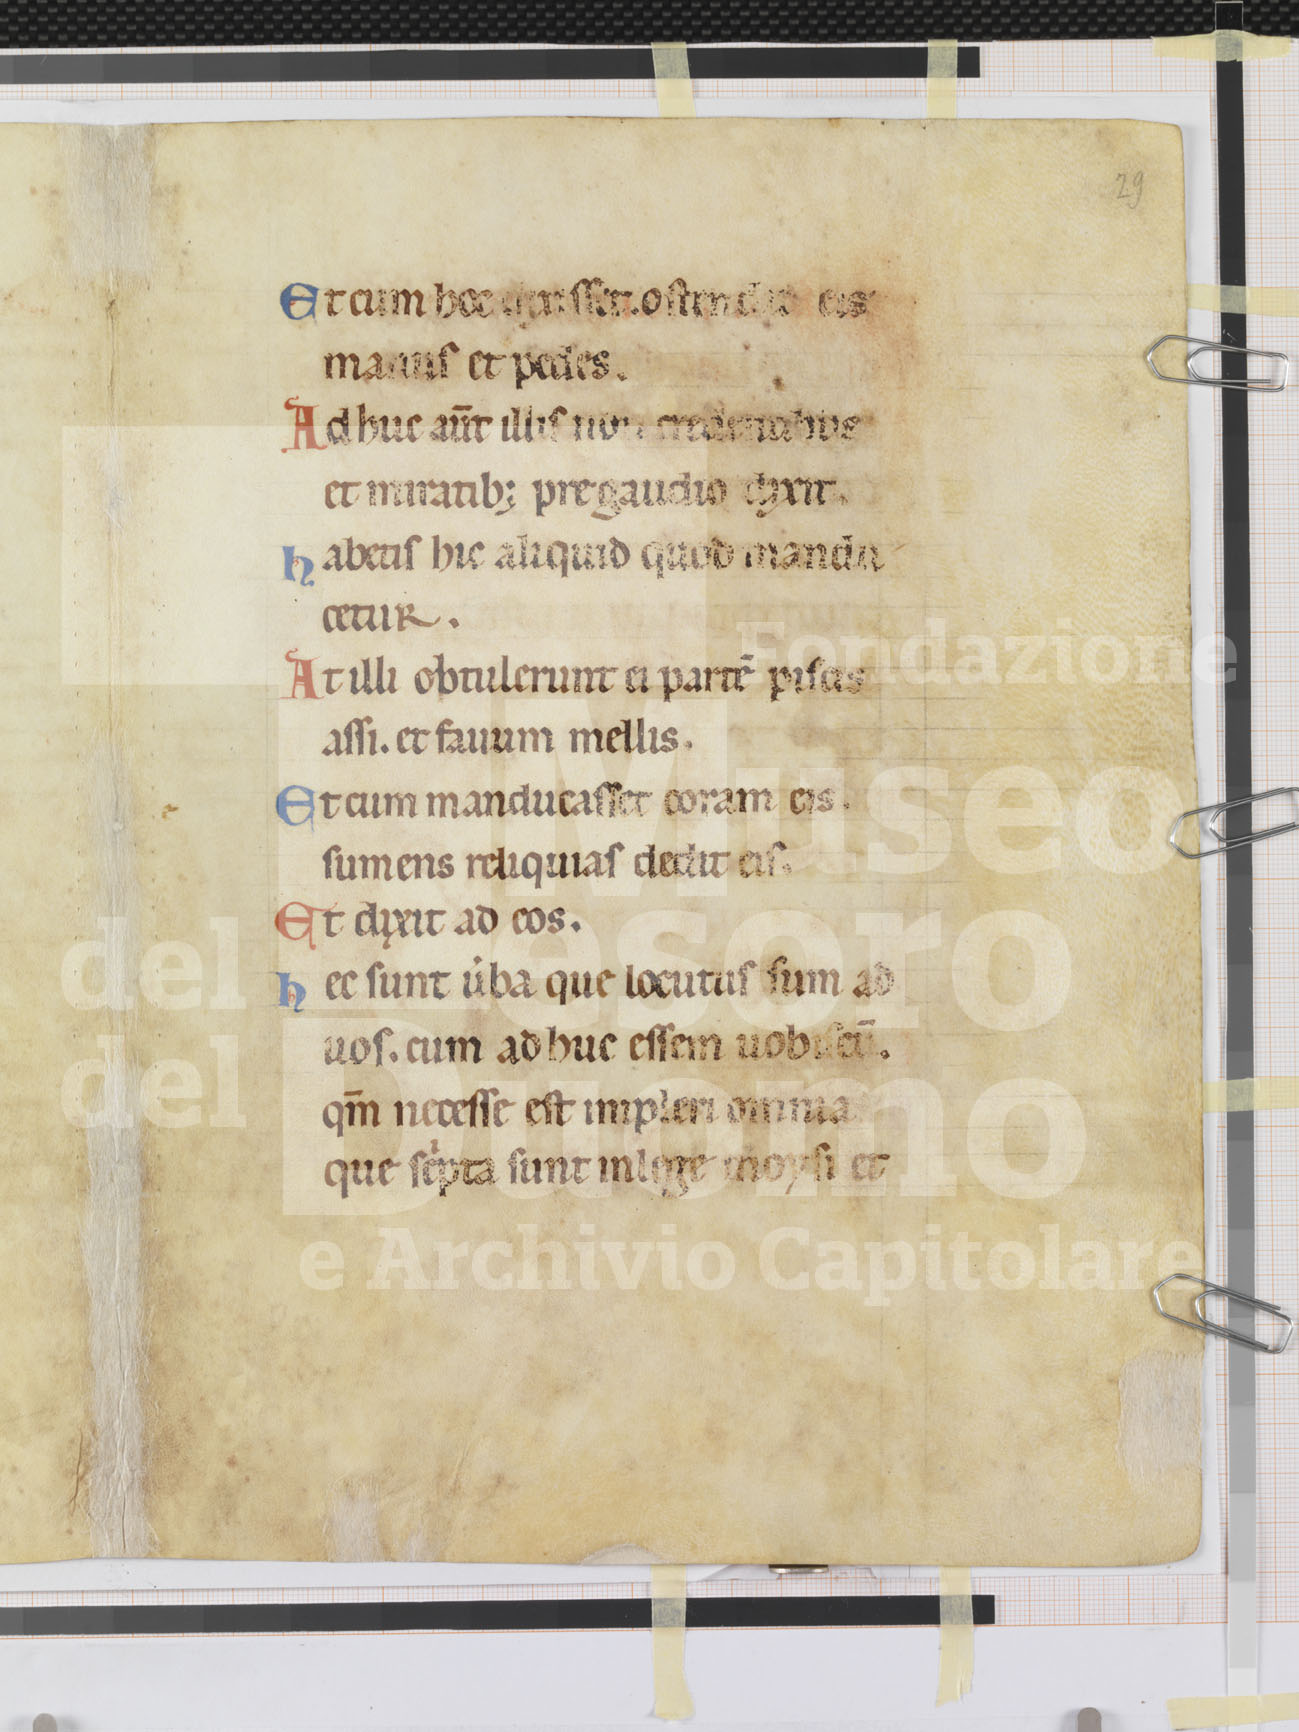 29
Et cum hoc dixisset. ostendit eis
manus et pedes.
Adhuc aut̄ illis non credentibus
et mirātib; pre gaudio dyxit.
habetis hic aliquid quod mandu
cetur.
At illi obtulerunt ei partē piscis
assi. et fauum mellis.
Et cum manducasset coram eis.
sumens reliquias dedit eis.
Et dyxit ad eos.
hec sunt u̍ba que locutus sum ad
uos. cum adhuc essem uobiscū.
qm̄ necesse est impleri omnia
que sc̍pta sunt in lege moysi et
Fondazione
Museo
del Tesoro
del Duomo
e Archivio Capitolare